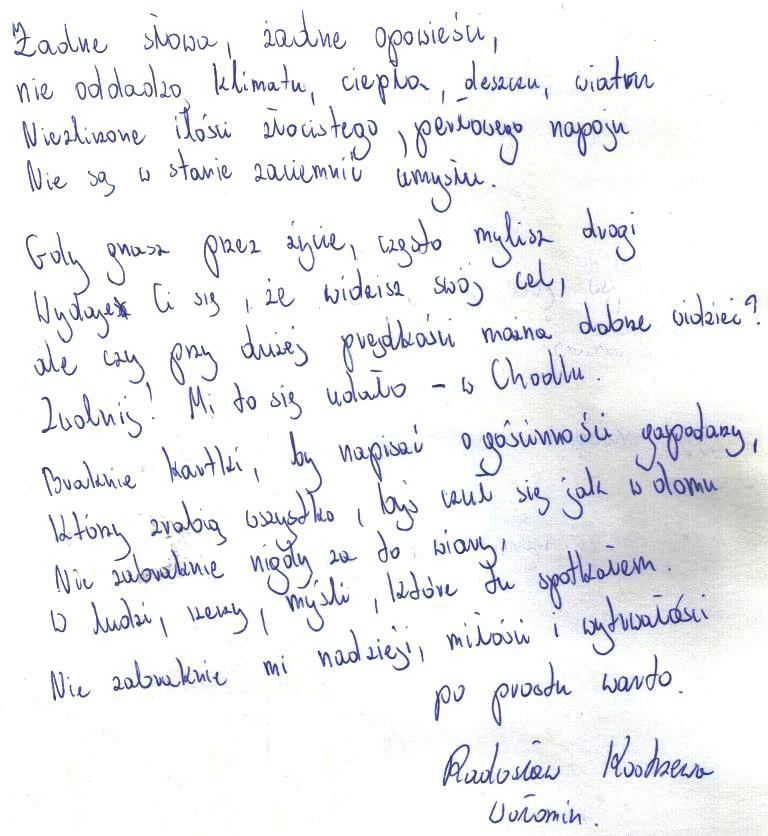 Żadne słowa, żadne opowieści,
nie oddadzą klimatu, ciepła, deszczu, wiatru
Niezliczone ilości złocistego, perłowego napoju
Nie są w stanie zaciemnić umysłu.
Gdy gnasz przez życie, często mylisz drogi
Wydaje Ci się, że widzisz swój cel,
ale czy przy dużej prędkości można dobrze widzieć?
Zwolnij! Mi to się udało – w Chodlu.
Braknie kartki, by napisać o gościnności gospodarzy,
którzy zrobią wszystko, byś czuł się jak w domu
Nie zabraknie nigdy za to wiary,
w ludzi, rzeczy, myśli, które tu spotkałem.
Nie zabraknie mi nadzieji, miłości i wytrwałości
po prostu warto.
Radosław
Wołomin.